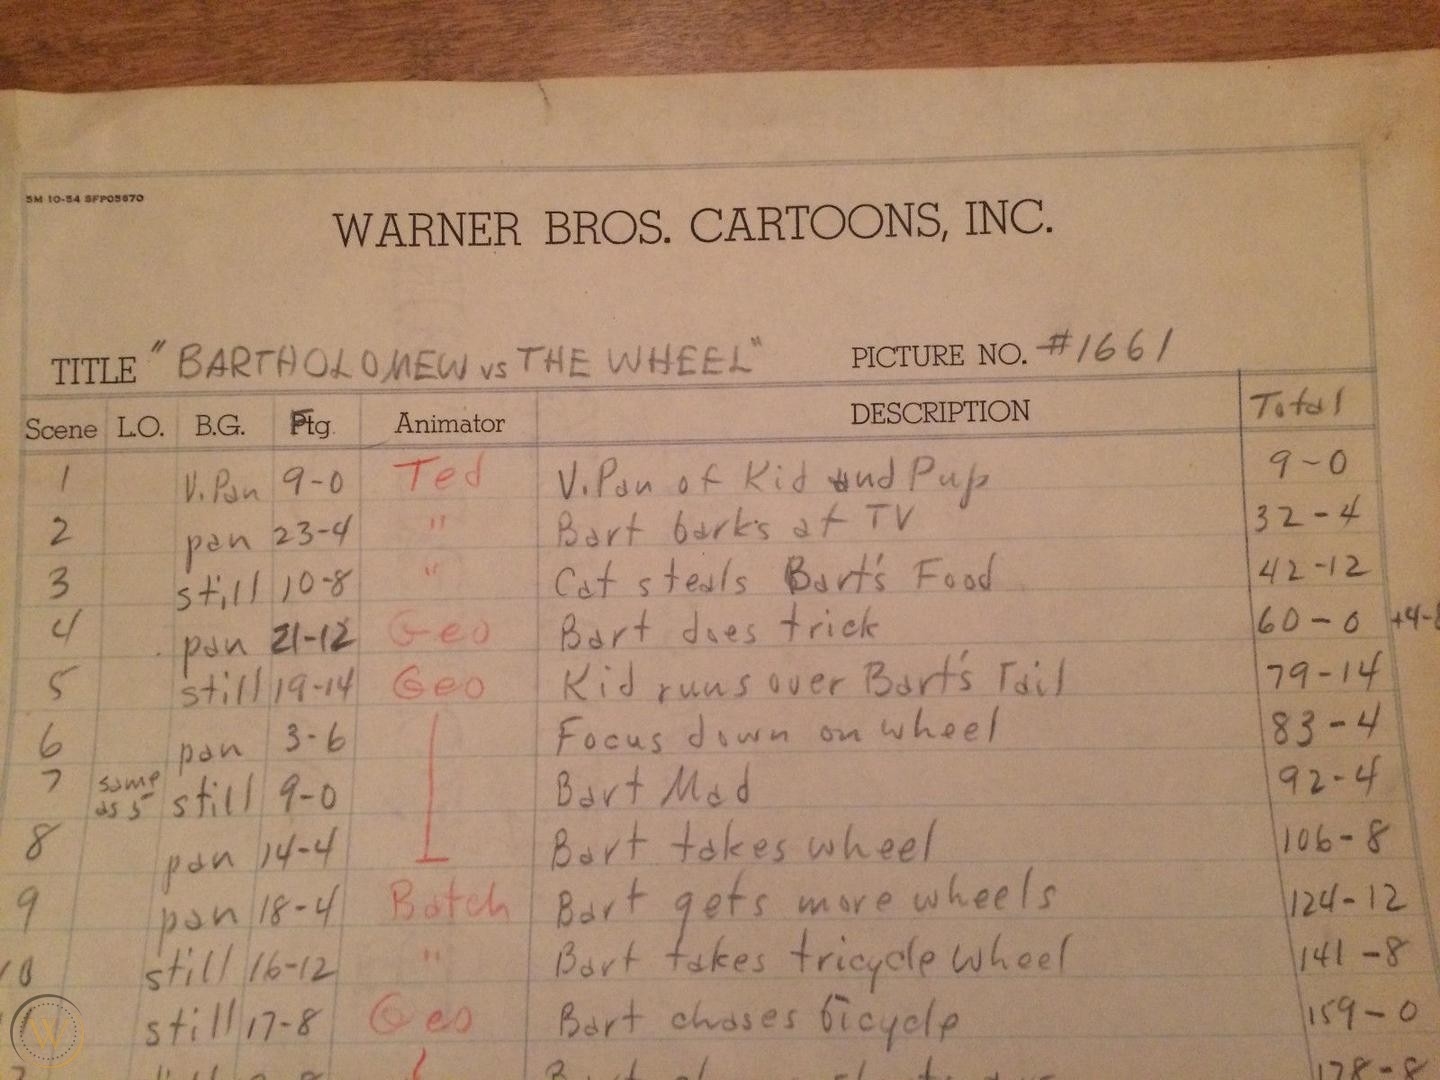 5M 10-54 SFP05670
WARNER BROS. CARTOONS, INC.
TITLE "BARTHOLOMEW vs THE WHEEL" PICTURE NO. #1661
Scene L.O. B.G. Ftg. Animator DESCRIPTION Total
1 V.Pan 9-0 Ted V.Pan of Kid and Pup 9-0
2 pan 23-4 " Bart barks at TV 32-4
3 still 10-8 " Cat steals Bart's Food 42-12
4 pan 21-12 Geo Bart does trick 60-0 +4-8
5 still 19-14 Geo Kid runs over Bart's Tail 79-14
6 pan 3-6 Focus down on wheel 83-4
7 same as 5 still 9-0 Bart Mad 92-4
8 pan 14-4 Bart takes wheel 106-8
9 pan 18-4 Batch Bart gets more wheels 124-12
10 still 16-12 " Bart takes tricycle wheel 141-8
still 17-8 Geo Bart chases bicycle 159-0
Bart 178-8
W